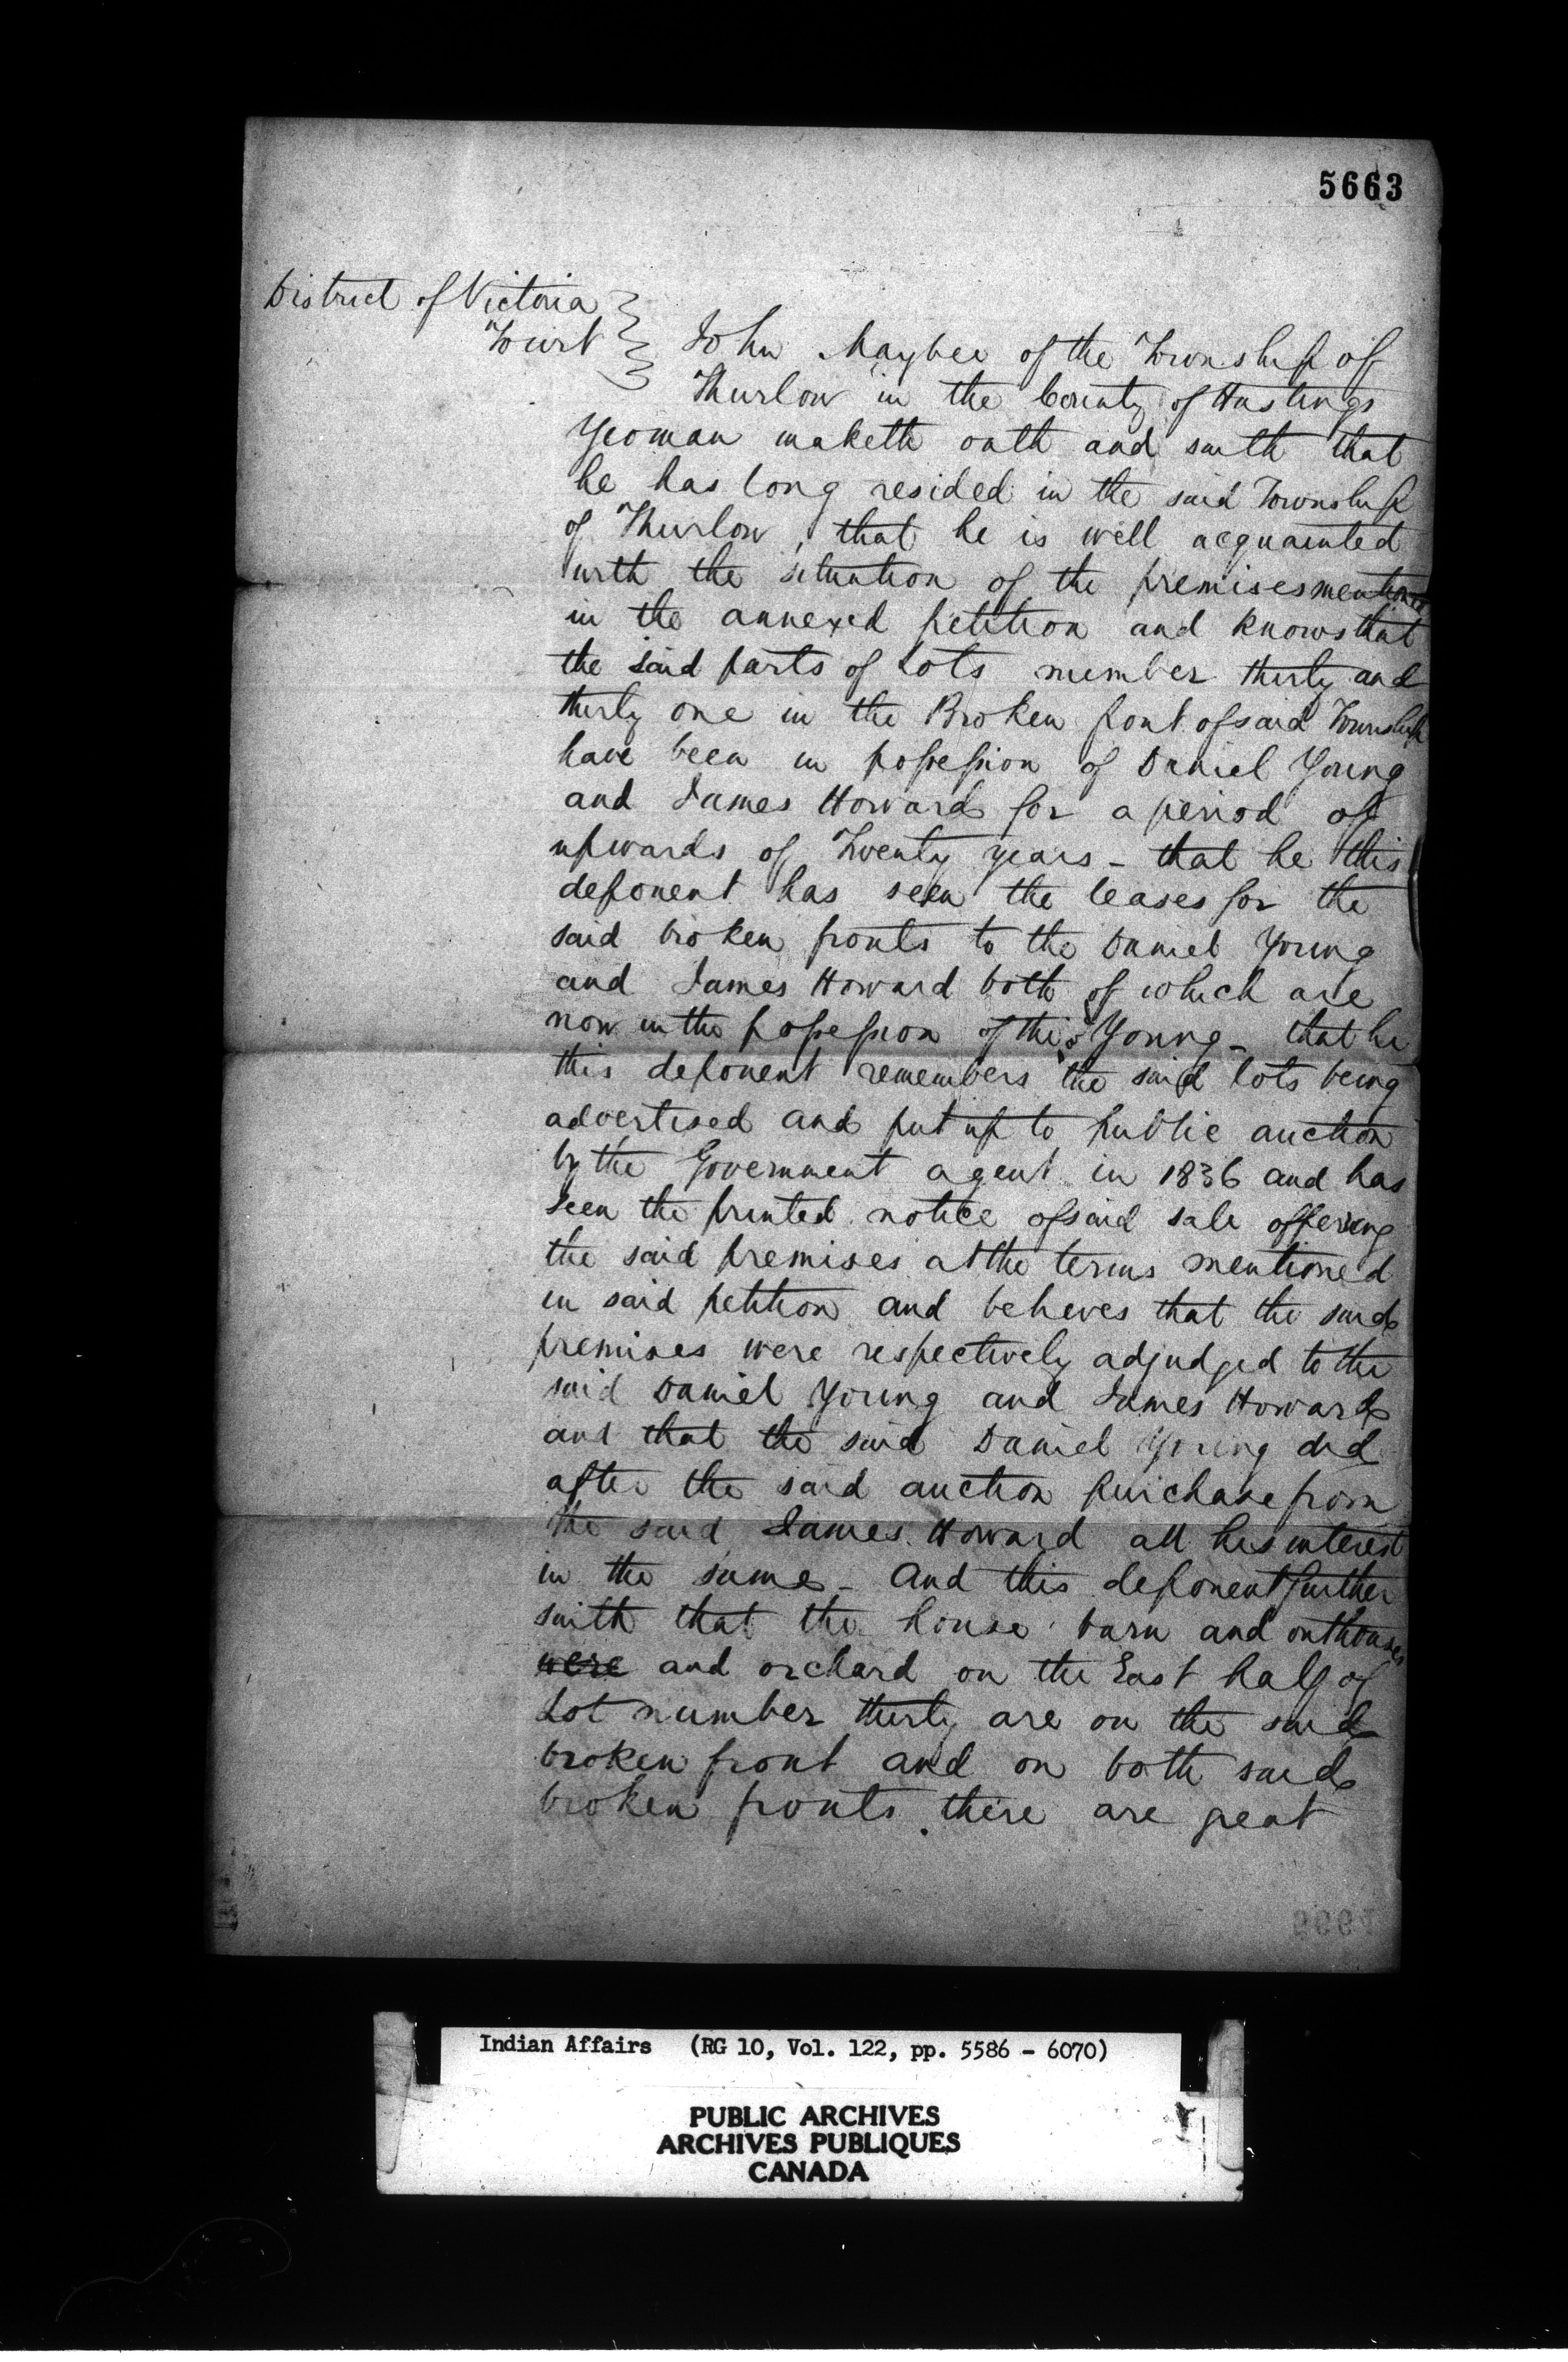 5663
District of Victoria
To wit
John Maybee of the Township of
Thurlow in the County of Hastings
Yeoman maketh oath and saith that
he has long resided in the said Township
of Thurlow, that he is well acquainted
with the situation of the premises mentioned
in the annexed petition and knows that
the said parts of Lots number thirty and
thirty one in the Broken front of said Township
have been in possession of Daniel Young
and James Howard for a period of
upwards of Twenty years - that he this
deponent has seen the leases for the
said broken fronts to the Daniel Young
and James Howard both of which are
now in the possession of the sd Young - that he
this deponent remembers the said lots being
advertised and put up to public auction
by the Government agent in 1836 and has
seen the printed notice of said sale offering
the said premises at the terms mentioned
in said petition and believes that the said
premises were respectively adjudged to the
said Daniel Young and James Howard
and that the said Daniel Young did
after the said auction purchase from
the said James Howard all his interest
in the same - And this deponent further
saith that the house barn and outhouses
were and orchard on the East half of
Lot number thirty are on the said
broken front and on both said
broken fronts there are great
Indian Affairs (RG 10, Vol. 122, pp. 5586 - 6070)
PUBLIC ARCHIVES
ARCHIVES PUBLIQUES
CANADA